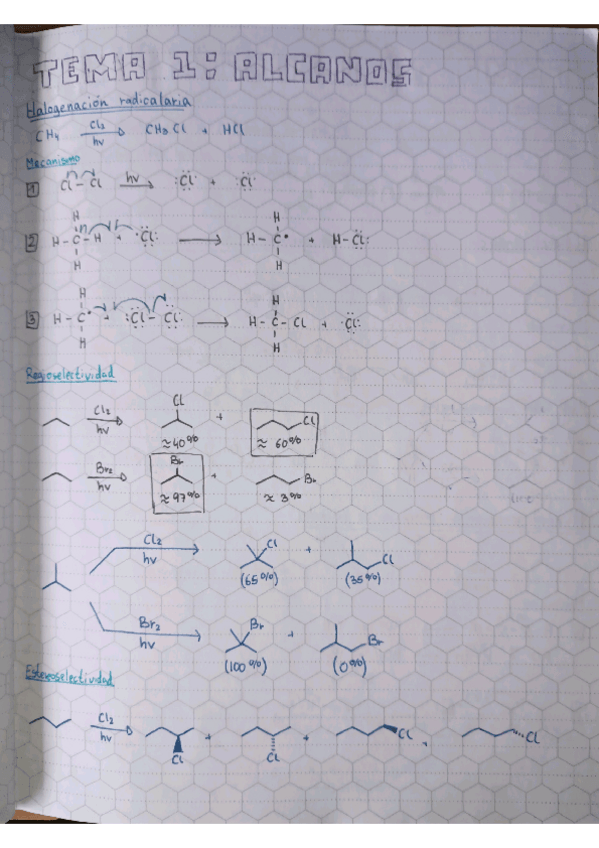 TEMA 1: ALCANOS
Halogenación radicalaria
CH4 Cl2 hv CH3Cl + HCl
Mecanismo
1 Cl-Cl hv :Cl· + :Cl·
2 H-C-H H H + ·Cl: H-C· H H + H-Cl:
3 H-C· H H + :Cl-Cl: H-C-Cl H H + ·Cl:
Regioselectividad
Cl2 hv Cl + Cl
≈40% ≈ 60%
Br2 hv Br + Br
≈97% ≈ 3%
Cl2 hv Cl + Cl
(65%) (35%)
Br2 hv Br + Br
(100%) (0%)
Estereoselectividad
Cl2 hv Cl + Cl + Cl + Cl